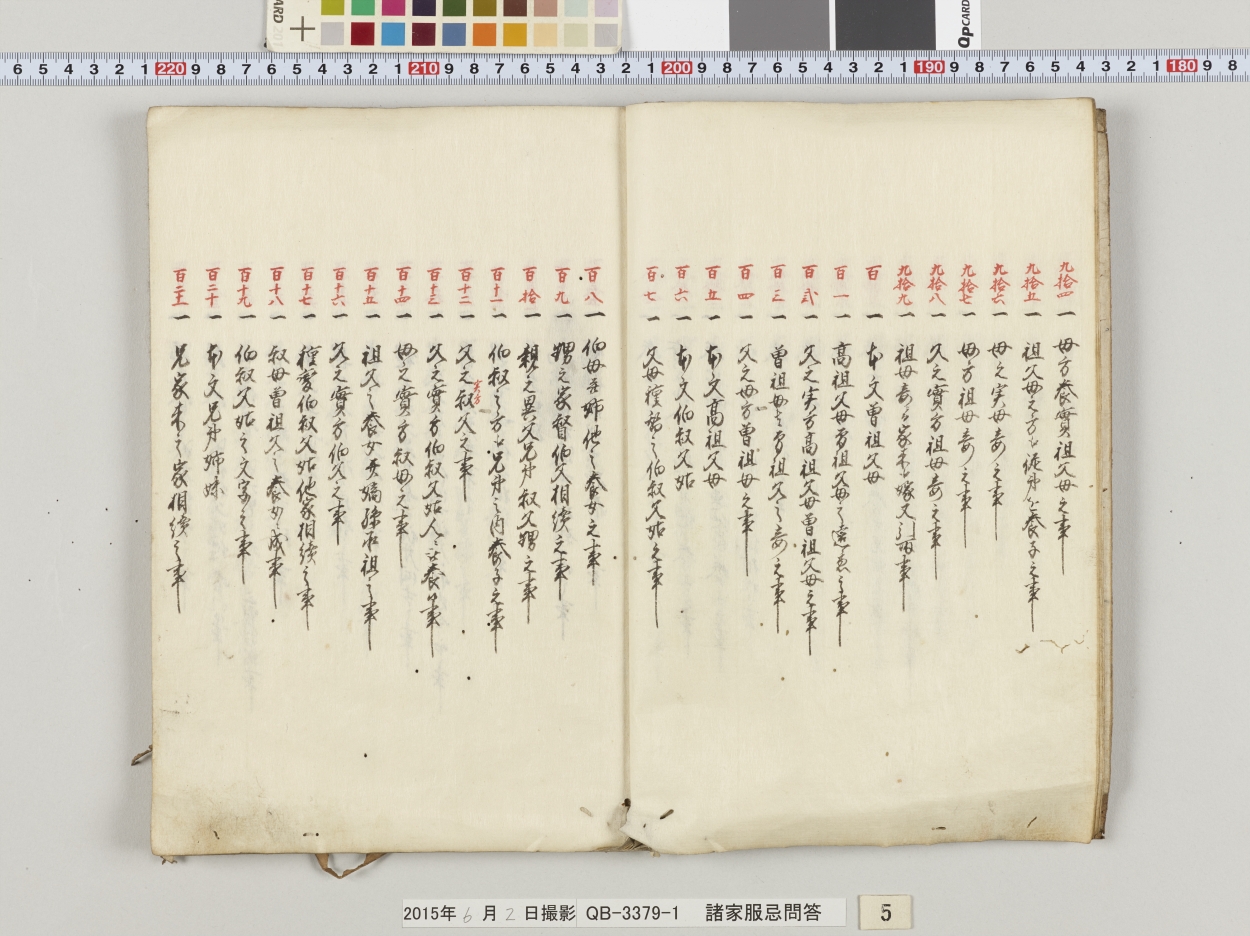 九拾四 一 母方養實祖父母之事
九拾五 一 祖父母之方ゟ従弟を養子之事
九拾六 一 母之実母妾之事
九拾七 一 母方祖母妾之事
九拾八 一 父之實方祖母妾之事
九拾九 一 祖母妾ゟ家来嫁又引取事
百 一 本文曽祖父母
百一 一 高祖父母曽祖父母之遠慮之事
百弐 一 父之実方高祖父母曽祖父母之事
百三 一 曽祖母曽祖父之妾之事
百四 一 父之母方曽祖母之事
百五 一 本文高祖父母
百六 一 本文伯叔父姑
百七 一 父母種替之伯叔父姑之事
百八 一 伯母并姉他之養女之事
百九 一 甥之家督伯父相續之事
百拾 一 親之異父兄弟叔父甥之事
百十一 一 伯叔之方ゟ兄弟之内養子之事
百十二 一 父之実方叔父之事
百十三 一 父之實方伯叔父姑人之養事
百十四 一 母之實方叔母之事
百十五 一 祖父之養女嫡孫承祖之事
百十六 一 父之實方伯父之事
百十七 一 種替伯叔父姑他家相續之事
百十八 一 叔母曽祖父之養女成事
百十九 一 伯叔父姑之文字之事
百二十 一 本文兄弟姉妹
百二十一 一 兄家来之家相續之事
2015年6月2日撮影 QB-3379-1 諸家服忌問答
5